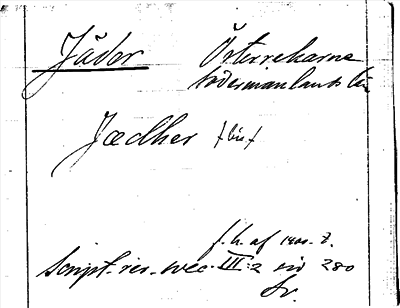 Jäder Österrekarne
Södermanlands län
Jædher
f. h. af
Script. rer. svec. III:2 sid 280